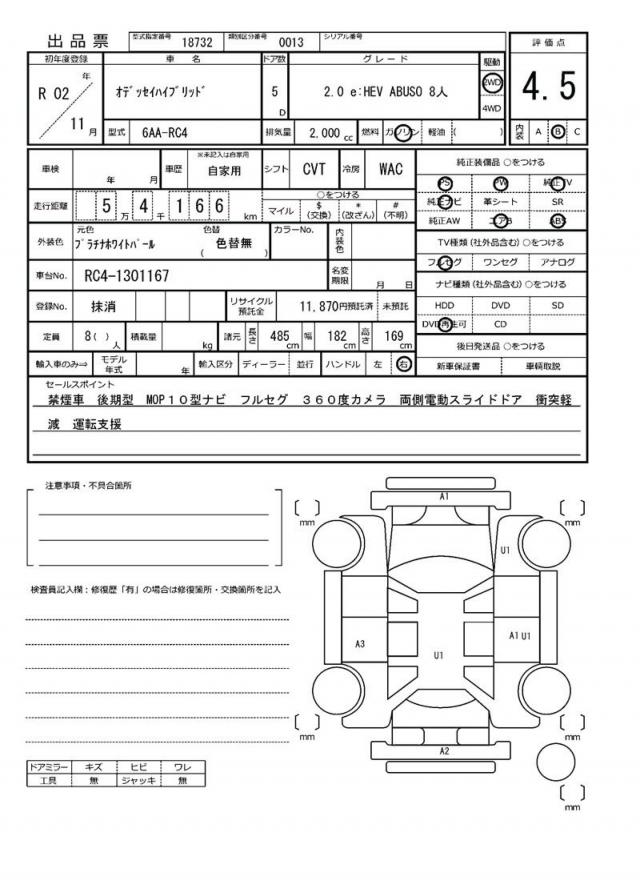 出品票 型式指定番号 18732 類別区分番号 0013 シリアル番号
初年度登録 車 名 ドア数 グレード 駆動 評価点
R 02 年 11 月 ｵﾃﾞｯｾｲﾊｲﾌﾞﾘｯﾄﾞ 5 D 2.0 e:HEV ABUSO 8人 2WD 4WD 4.5
型式 6AA-RC4 排気量 2,000 cc 燃料 ガソリン 軽油 ( ) 内装 A B C
車検 年 月 車歴 ※未記入は自家用 自家用 シフト CVT 冷房 WAC
走行距離 5 万 4 千 1 6 6 km ○をつける
マイル $ (交換) * (改ざん) # (不明)
外装色 元色 ﾌﾟﾗﾁﾅﾎﾜｲﾄﾊﾟｰﾙ 色替 ( 色替無 ) カラーNo. 内装色
車台No. RC4-1301167 名変期限 月 日
登録No. 抹消 リサイクル預託金 11,870円預託済 未預託
定員 8( ) 人 積載量 kg 諸元 長さ 485 cm 幅 182 cm 高さ 169 cm
輸入車のみ⇒ モデル年式 年 輸入区分 ディーラー 並行 ハンドル 左 右
純正装備品 ○をつける
PS PW 純正TV
純正ナビ 革シート SR
純正AW エアB ABS
TV種類 (社外品含む) ○をつける
フルセグ ワンセグ アナログ
ナビ種類 (社外品含む) ○をつける
HDD DVD SD
DVD再生可 CD
後日発送品 ○をつける
新車保証書 車輌取説
セールスポイント
禁煙車 後期型 MOP10型ナビ フルセグ 360度カメラ 両側電動スライドドア 衝突軽
減 運転支援
注意事項・不具合箇所
検査員記入欄：修復歴「有」の場合は修復箇所・交換箇所を記入
ドアミラー キズ ヒビ ワレ
工具 無 ジャッキ 無
A1
mm mm
U1
A3 U1 A1 U1
mm mm
A2
mm